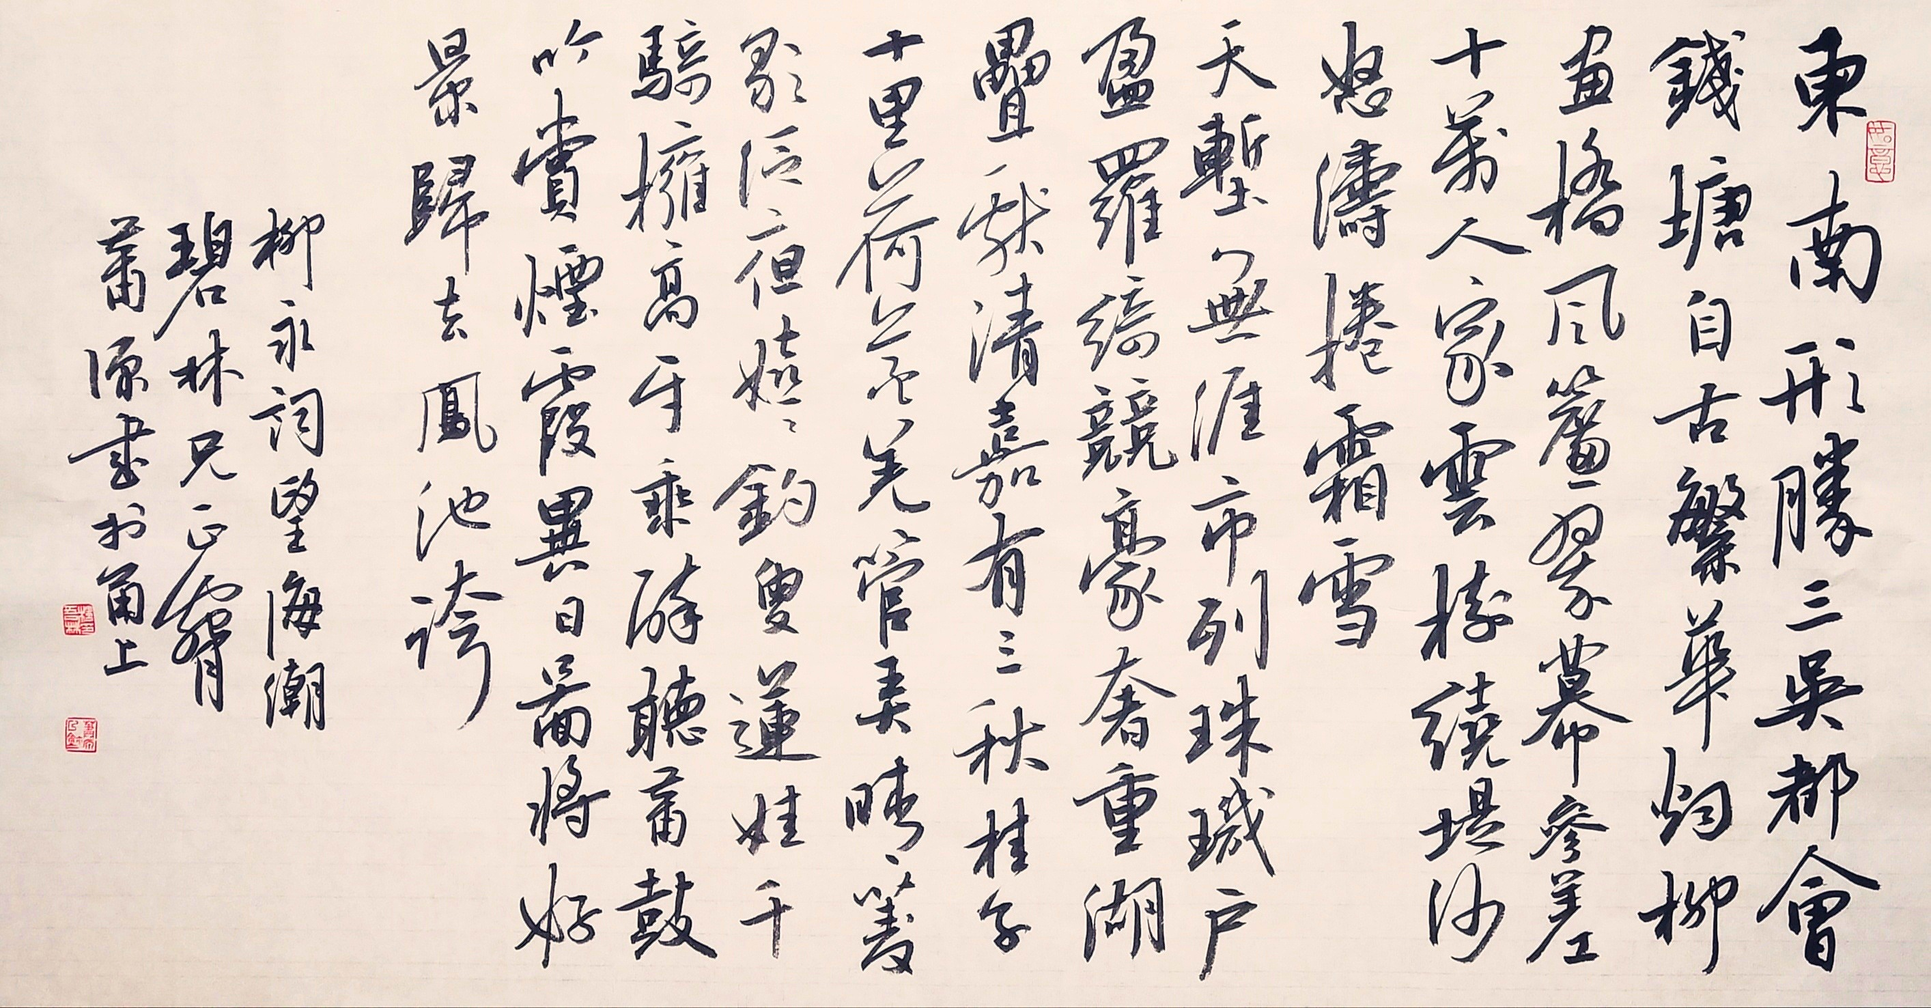 東南形勝三吳都會
錢塘自古繁華烟柳
畫橋風簾翠幕參差
十萬人家雲樹繞堤沙
怒濤捲霜雪
天塹無涯市列珠璣戶
盈羅綺競豪奢重湖
疊巘清嘉有三秋桂子
十里荷花羌管弄晴菱
歌泛夜嬉々釣叟蓮娃千
騎擁高牙乘醉聽簫鼓
吟賞煙霞異日圖將好
景歸去鳳池誇
柳永詞望海潮
碧林兄正
蕭源書於甬上